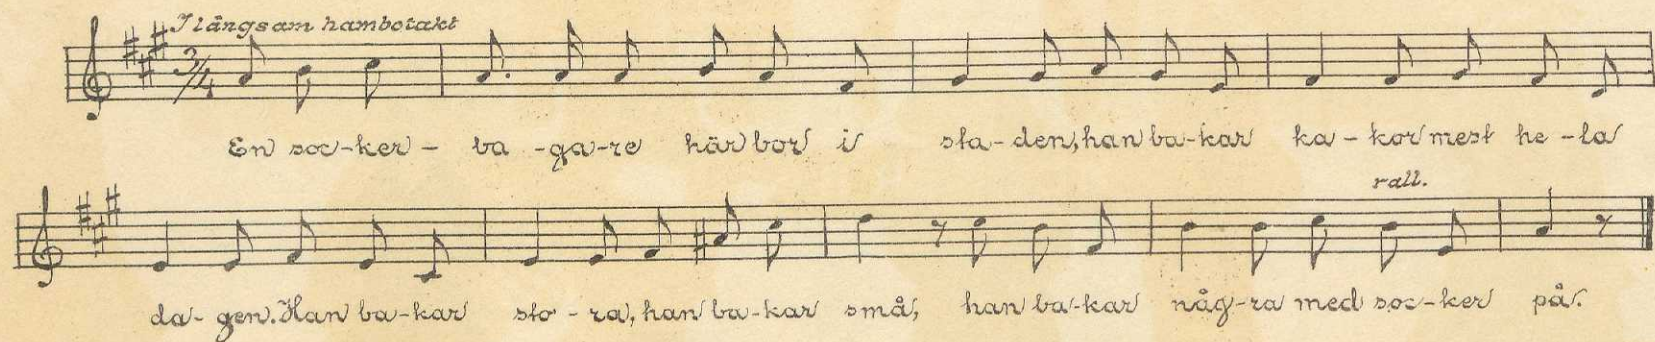 I långsam hambotakt
3/4
En soc-ker-ba-ga-re här bor i sta-den, han ba-kar ka-kor mest he-la
rall.
da-gen. Han ba-kar sto-ra, han ba-kar små, han ba-kar någ-ra med soc-ker på.